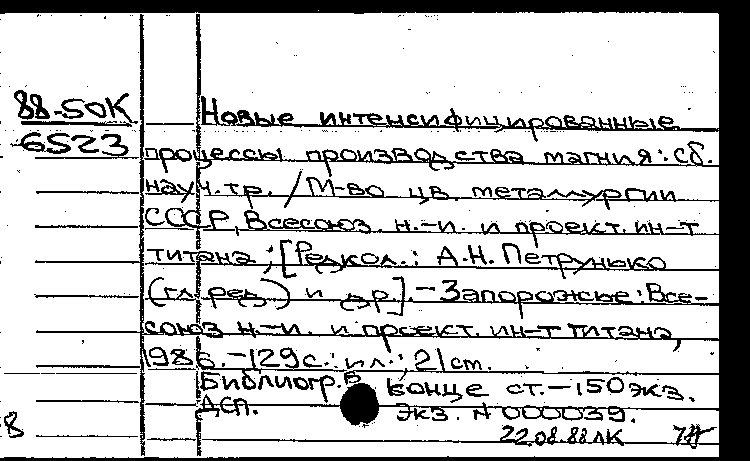 88-50К
6523
Новые интенсифицированные
процессы производства магния: сб.
науч. тр. / М-во цв. металлургии
СССР, Всесоюз. н.-и. и проект. ин-т
титана; [Редкол.: А.Н. Петрунько
(гл. ред.) и др.]. - Запорожье: Все-
союз. н.-и. и проект. ин-т титана,
1986. - 129 с.: ил.; 21 cm.
Библиогр. в конце ст. - 150 экз.
ДСП. Экз. N 000039.
22.08.88 ЛК
8